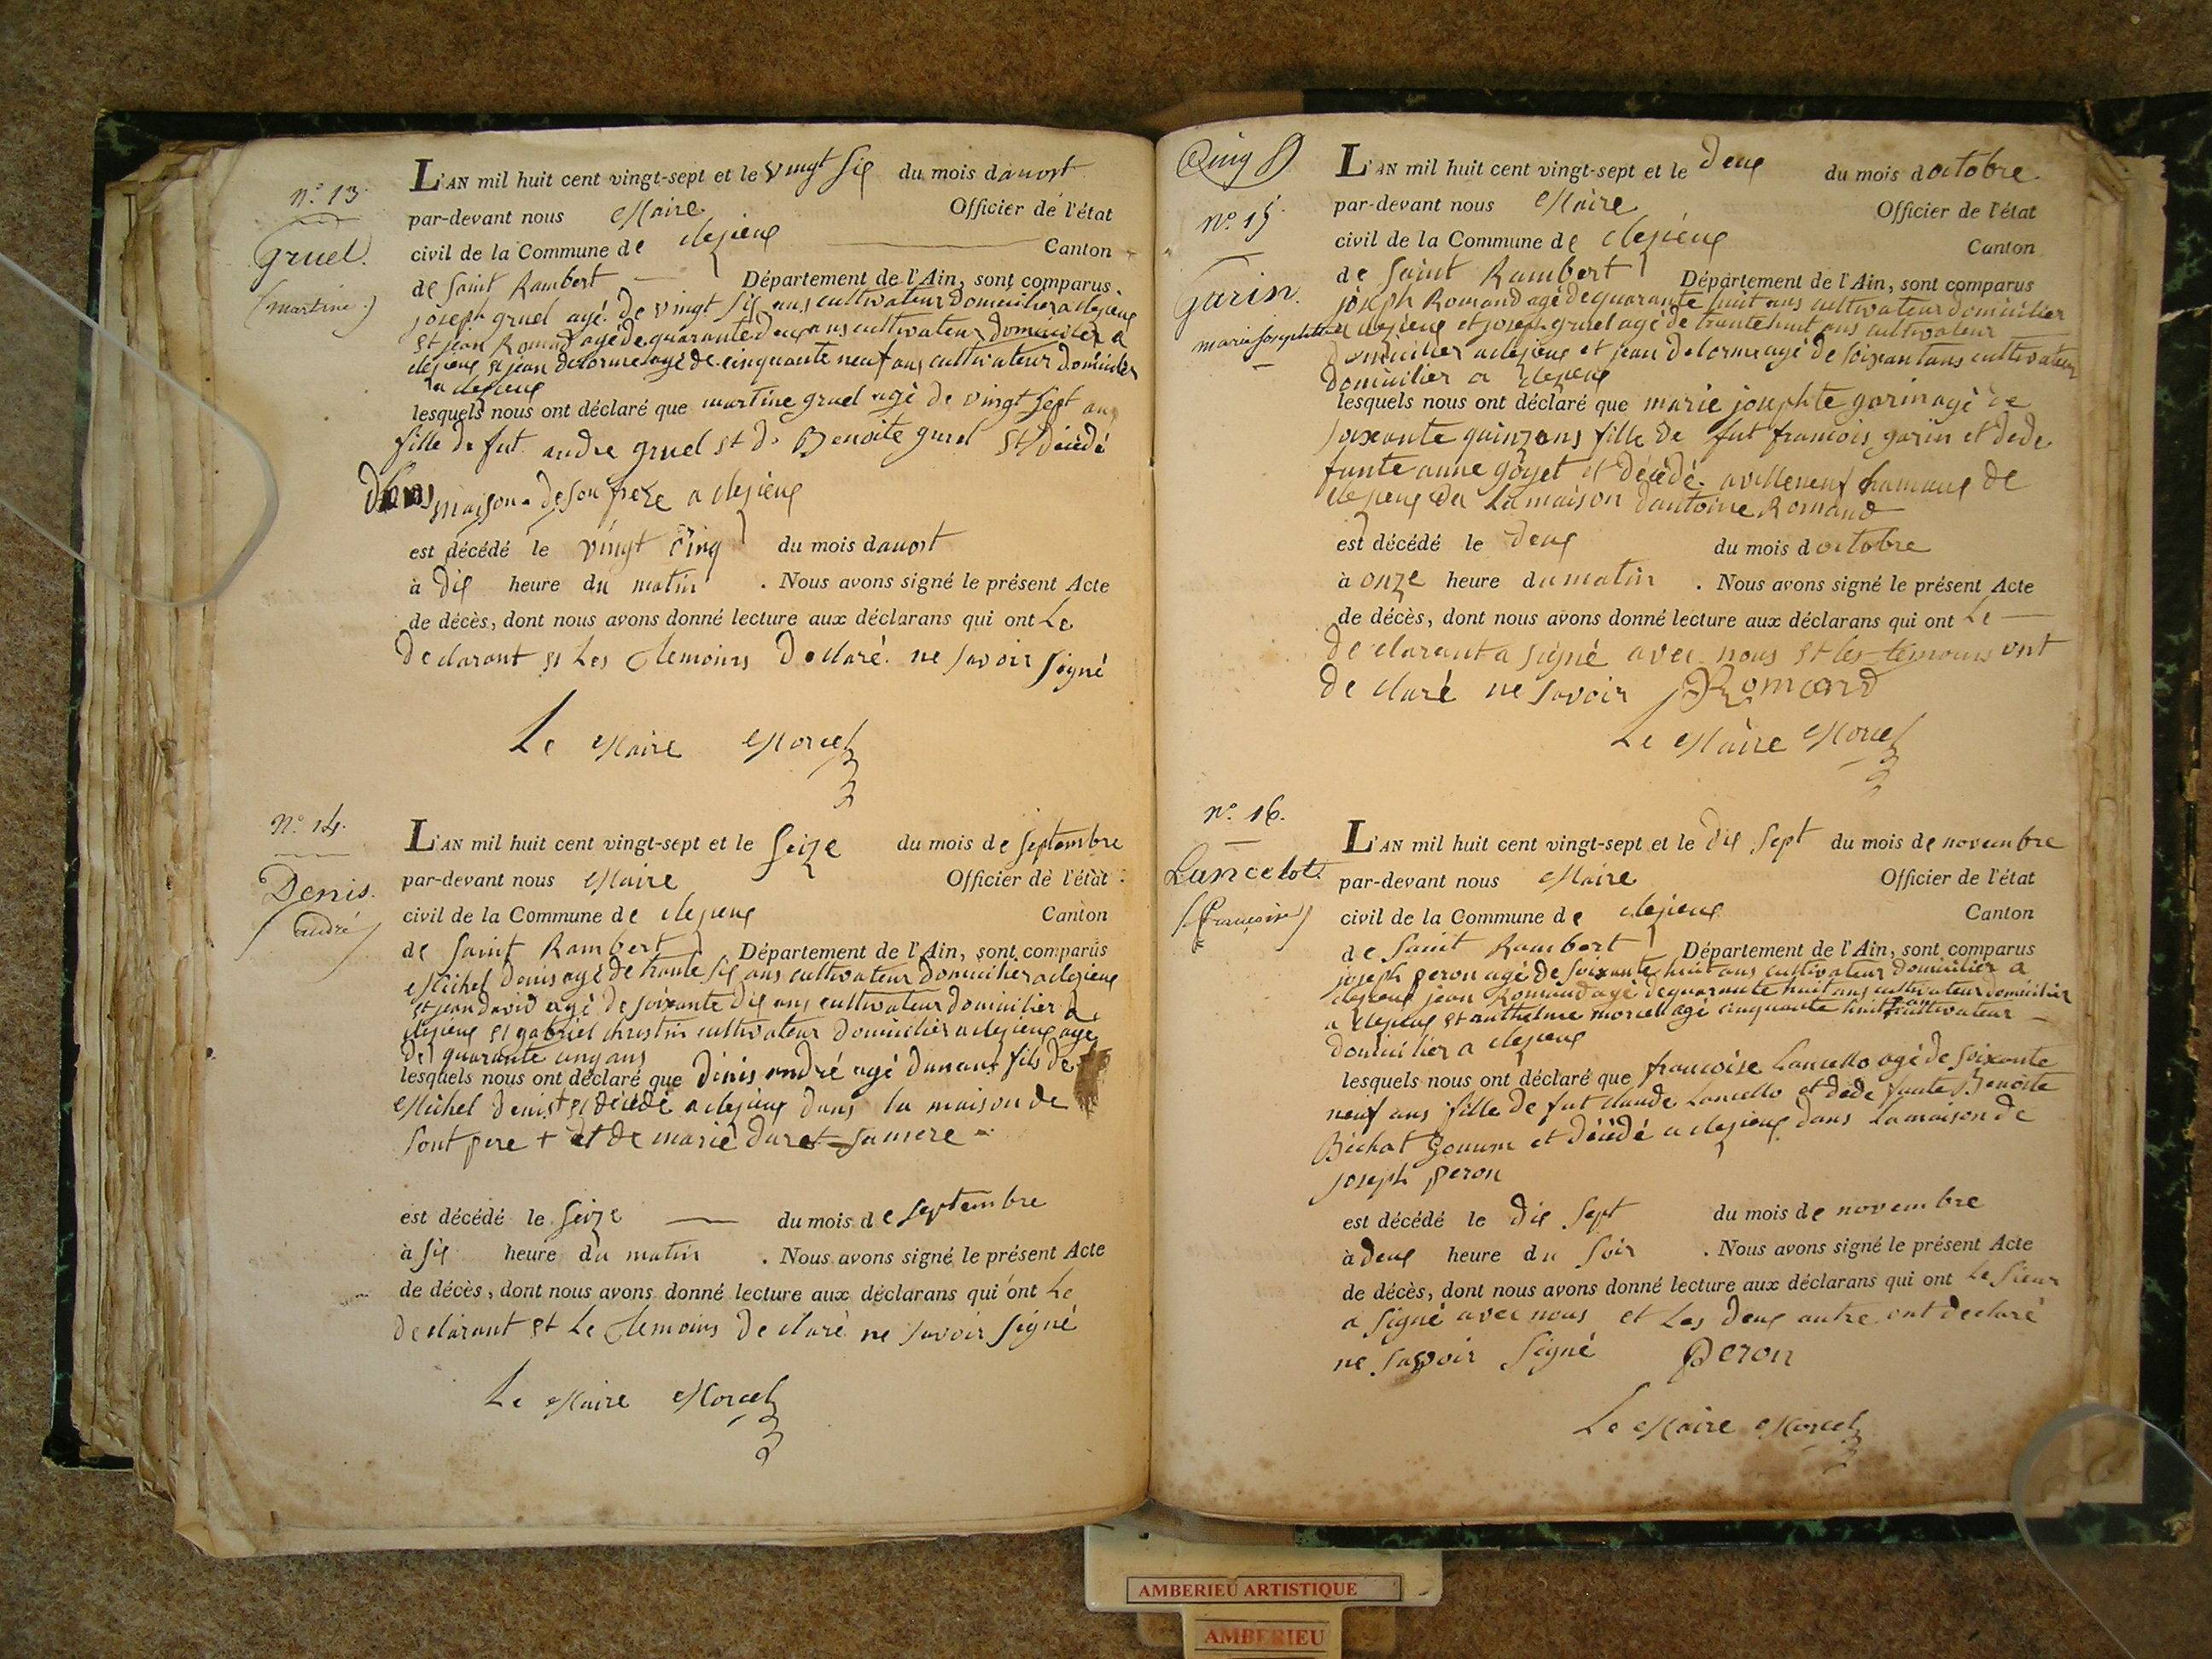 n.° 13.
gruel.
(martine)
L'AN mil huit cent vingt-sept et le vingt six du mois d auost
par-devant nous Maire Officier de l'état
civil de la Commune de clezieux Canton
de Saint Rambert Département de l'Ain, sont comparus
joseph gruel agé de vingt six ans cultivateur domicilier a clezieux
et jean Romand agé de quarante deux ans cultivateur domicilier a
clezieux et jean delorme agé de cinquante neuf ans cultivateur domicilier
a clezieux
lesquels nous ont déclaré que martine gruel agé de vingt sept ans
fille de fut andre gruel et d. Benoite gurel et décédé
dans maison de son frere a clezieux
est décédé le vingt cinq du mois d auost
à dix heure du matin . Nous avons signé le présent Acte
de décès, dont nous avons donné lecture aux déclarans qui ont Le
declarant et Les temoins declaré ne savoir signé
Le Maire Morcel
N.° 14.
Denis.
(andré)
L'AN mil huit cent vingt-sept et le seize du mois de septembre
par-devant nous Maire Officier de l'état
civil de la Commune de clezieux Canton
de Saint Rambert Département de l'Ain, sont comparus
Michel denis agé de trante six ans cultivateur domicilier a clezieux
et jean david agé de soixante dix ans cultivateur domicilier a
clezieux et gabriel christin cultivateur domicilier a clezieux agé
de quarante cinq ans
lesquels nous ont déclaré que dinis andré agé dun ans fils de
Michel denis et décédé a clezieux dans la maison de
sont pere + et de marie duret sa mere
est décédé le seize du mois de septembre
à six heure du matin . Nous avons signé le présent Acte
de décès, dont nous avons donné lecture aux déclarans qui ont Le
declarant et Le temoins declaré ne savoir signé
Le Maire Morcel
Cinq
n.° 15
Garin.
marie josephte
L'AN mil huit cent vingt-sept et le deux du mois d octobre
par-devant nous Maire Officier de l'état
civil de la Commune de clezieux Canton
de Saint Rambert Département de l'Ain, sont comparus
joseph Romand agé de quarante huit ans cultivateur domicilier
a clezieux et joseph gruel agé de trante huit ans cultivateur
domicilier a clezieux et jean delorme agé de soixant ans cultivateur
domicilier a clezieux
lesquels nous ont déclaré que marie josephte garin agé de
soixante quinze ans fille de fut francois garin et de de
funte anne goyet et décédé a villeneuf hamaux de
clezieux da La maison dantoine Romand
est décédé le deux du mois d octobre
à onze heure du matin . Nous avons signé le présent Acte
de décès, dont nous avons donné lecture aux déclarans qui ont Le
declarant a signé avec nous et les temoins ont
declaré ne savoir Romand
Le Maire Morcel
n.° 16.
Lancelot
(françoise)
L'AN mil huit cent vingt-sept et le dix sept du mois de novembre
par-devant nous Maire Officier de l'état
civil de la Commune de clezieux Canton
de Saint Rambert Département de l'Ain, sont comparus
joseph peron agé de soixante huit ans cultivateur domicilier a
clezieux jean Romand agé de quarante huit ans cultivateur domicilier
a clezieux et anthelme morcel agé cinquante huit ans cultivateur
domicilier a clezieux
lesquels nous ont déclaré que francoise Lancello agé de soixante
neuf ans fille de fut claude Lancello et de de funte Benoite
Bichat et décédé a clezieux dans La maison de
joseph peron
est décédé le dix sept du mois de novembre
à deux heure du soir . Nous avons signé le présent Acte
de décès, dont nous avons donné lecture aux déclarans qui ont Le sieur
a signé avec nous et Les deux autre ont declaré
ne savoir signé peron
Le Maire Morcel
AMBERIEU ARTISTIQUE
AMBERIEU